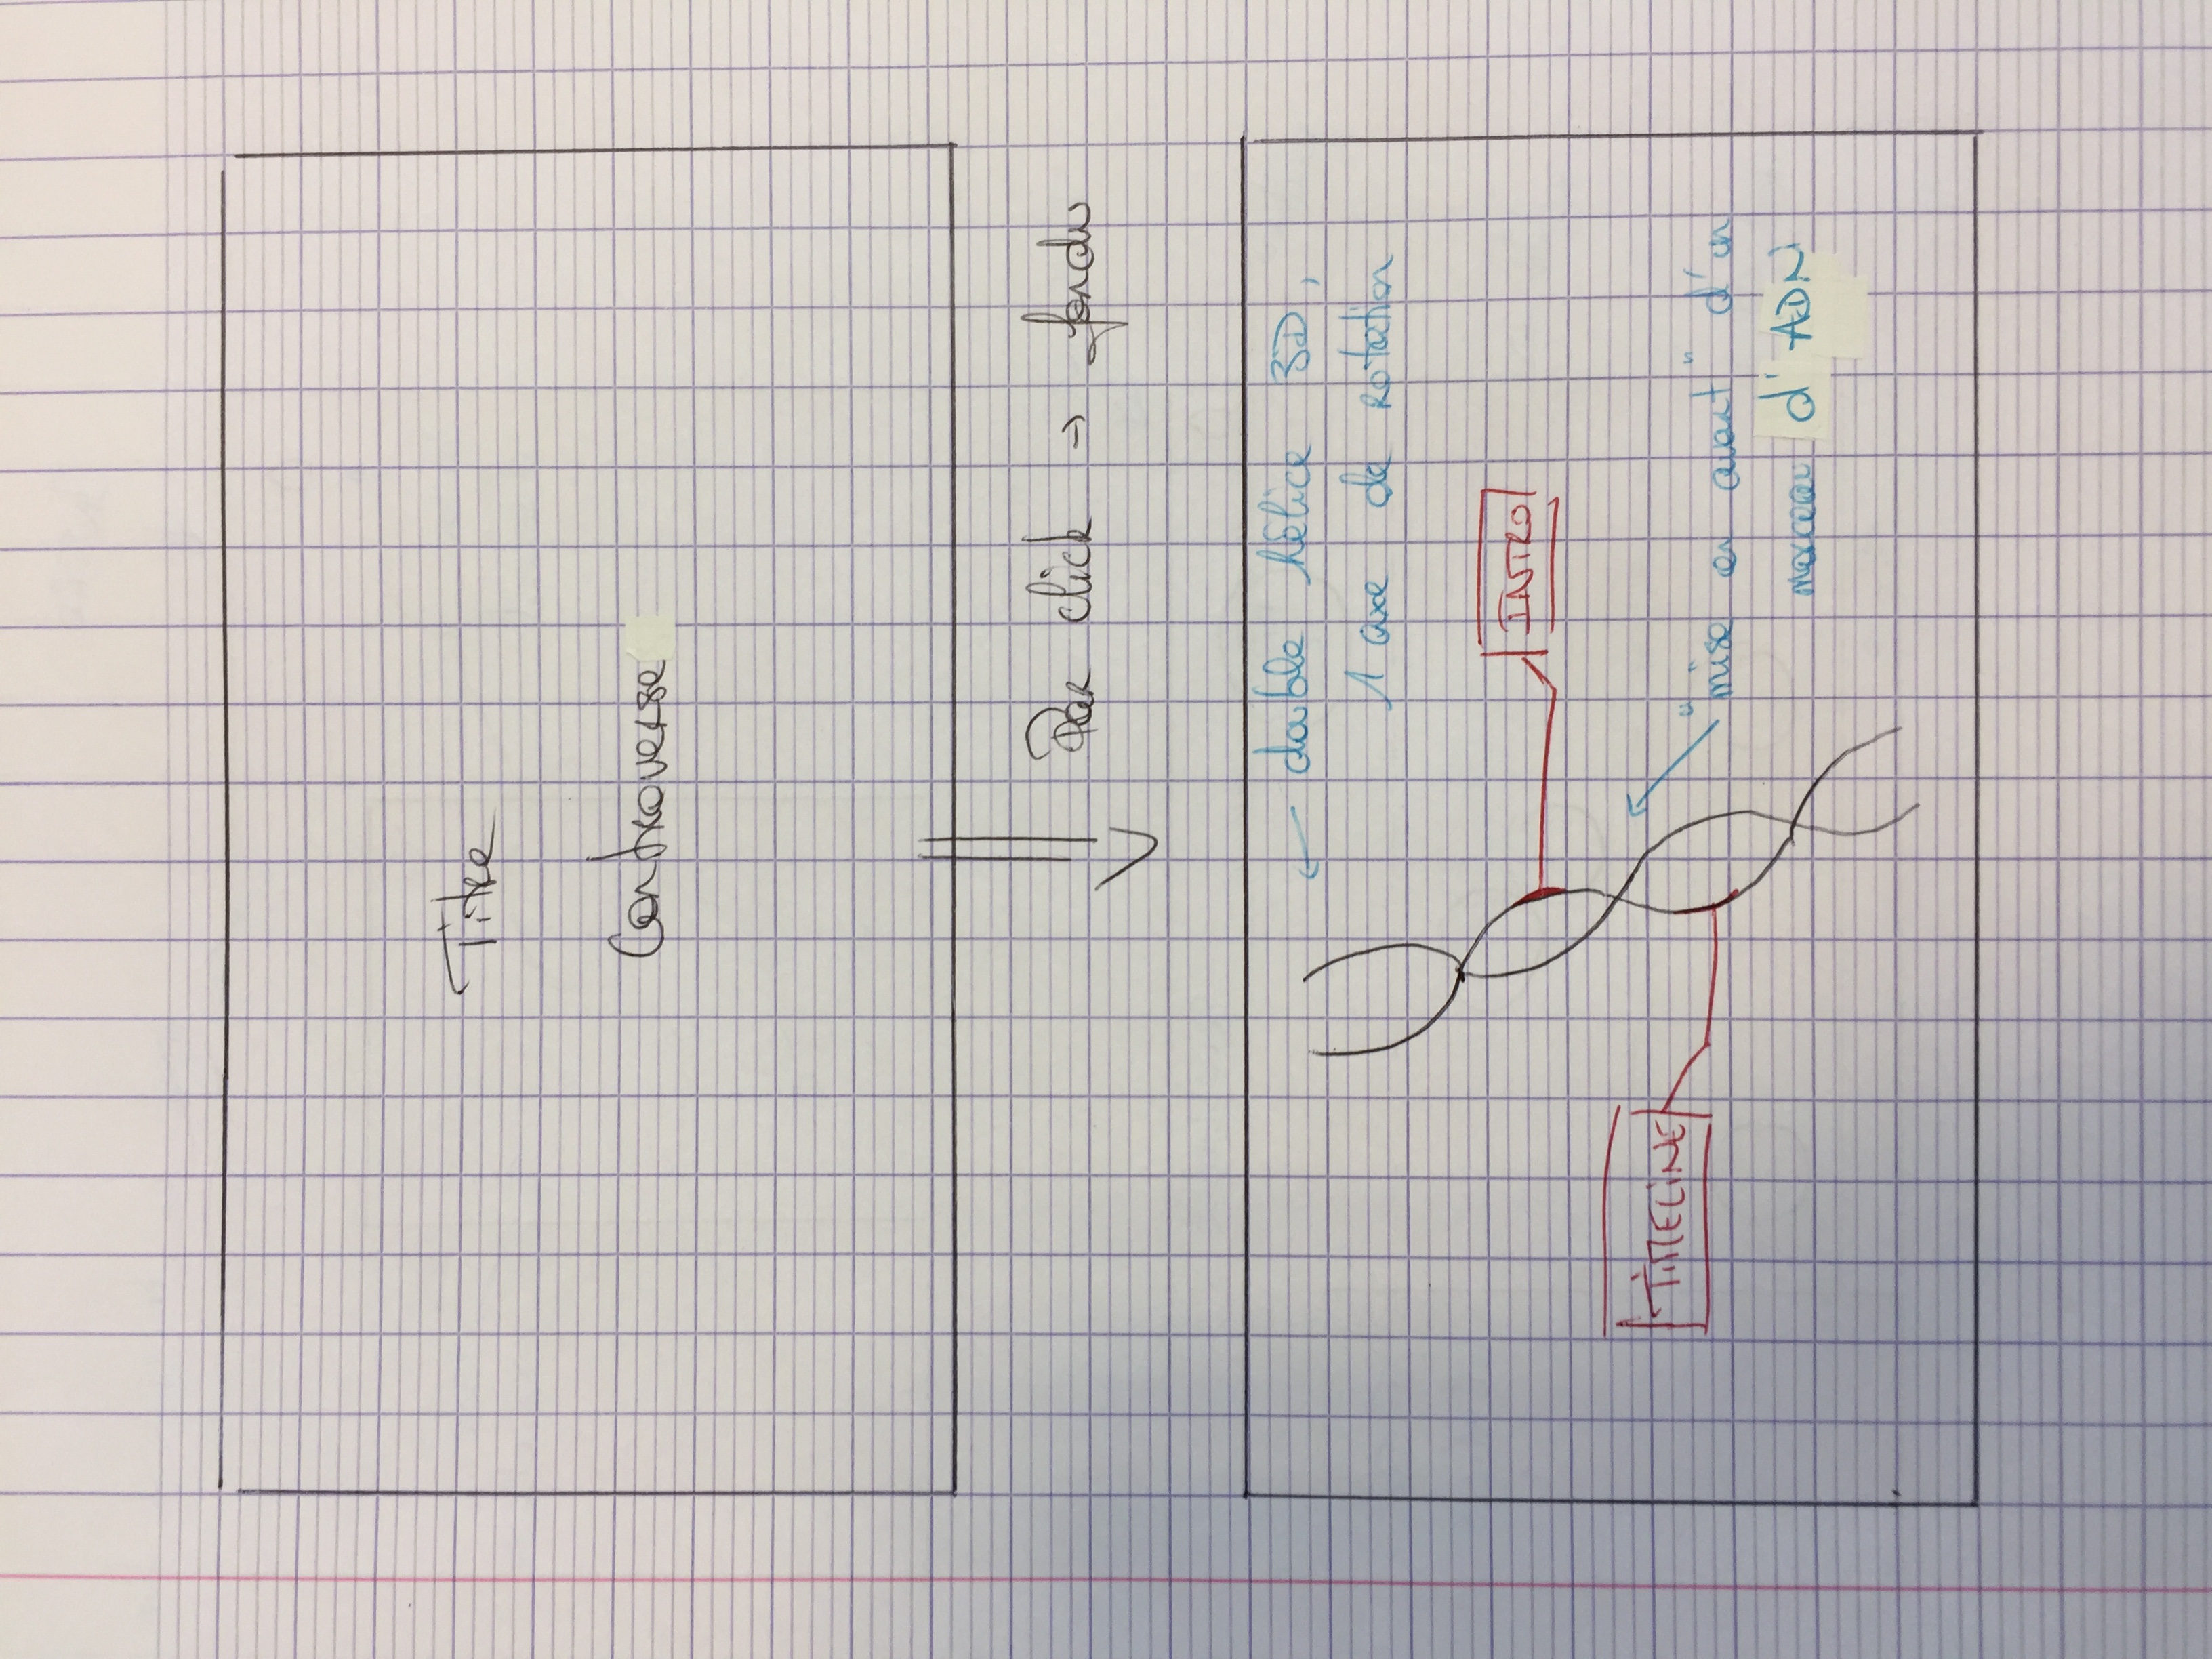 Titre
Controverse
Par click → fondu
← double hélice 3D,
1 axe de rotation
INTRO
TIMELINE
"mise en avant" d'un
morceau d'ADN